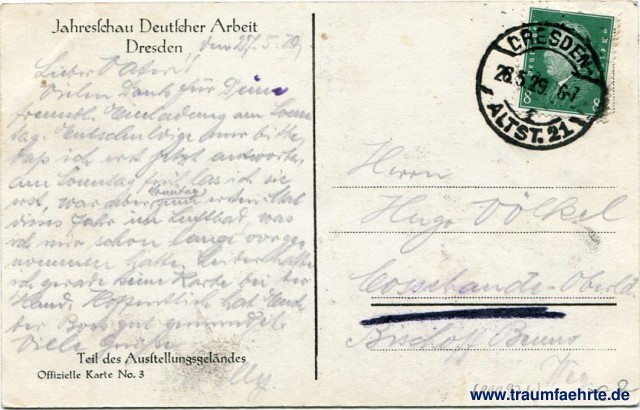 Jahresschau Deutscher Arbeit
Dresden
den 27.5.29.
Lieber Vater!!
Vielen Dank für Deine
freundl. Einladung am Sonn
tag. Entschuldige aber bitte,
daß ich erst jetzt antworte,
am Sonntag früh las ich sie
erst, war aber Sonntag zum ersten Mal
dieses Jahr im Luftbad, was
ich mir schon lange vorge-
nommen hatte. Leider hatte
ich gerade keine Karte bei der
Hand. Hoffentlich hat Euch
der Bock gut gemundet.
Viele Grüße
Teil des Ausstellungsgeländes
Offizielle Karte No. 3
DRESDEN
28.5.29. 6-7
ALTST. 21
8 8
Herrn
Hugo Völkel
Bischoff
www.traumfaehrte.de